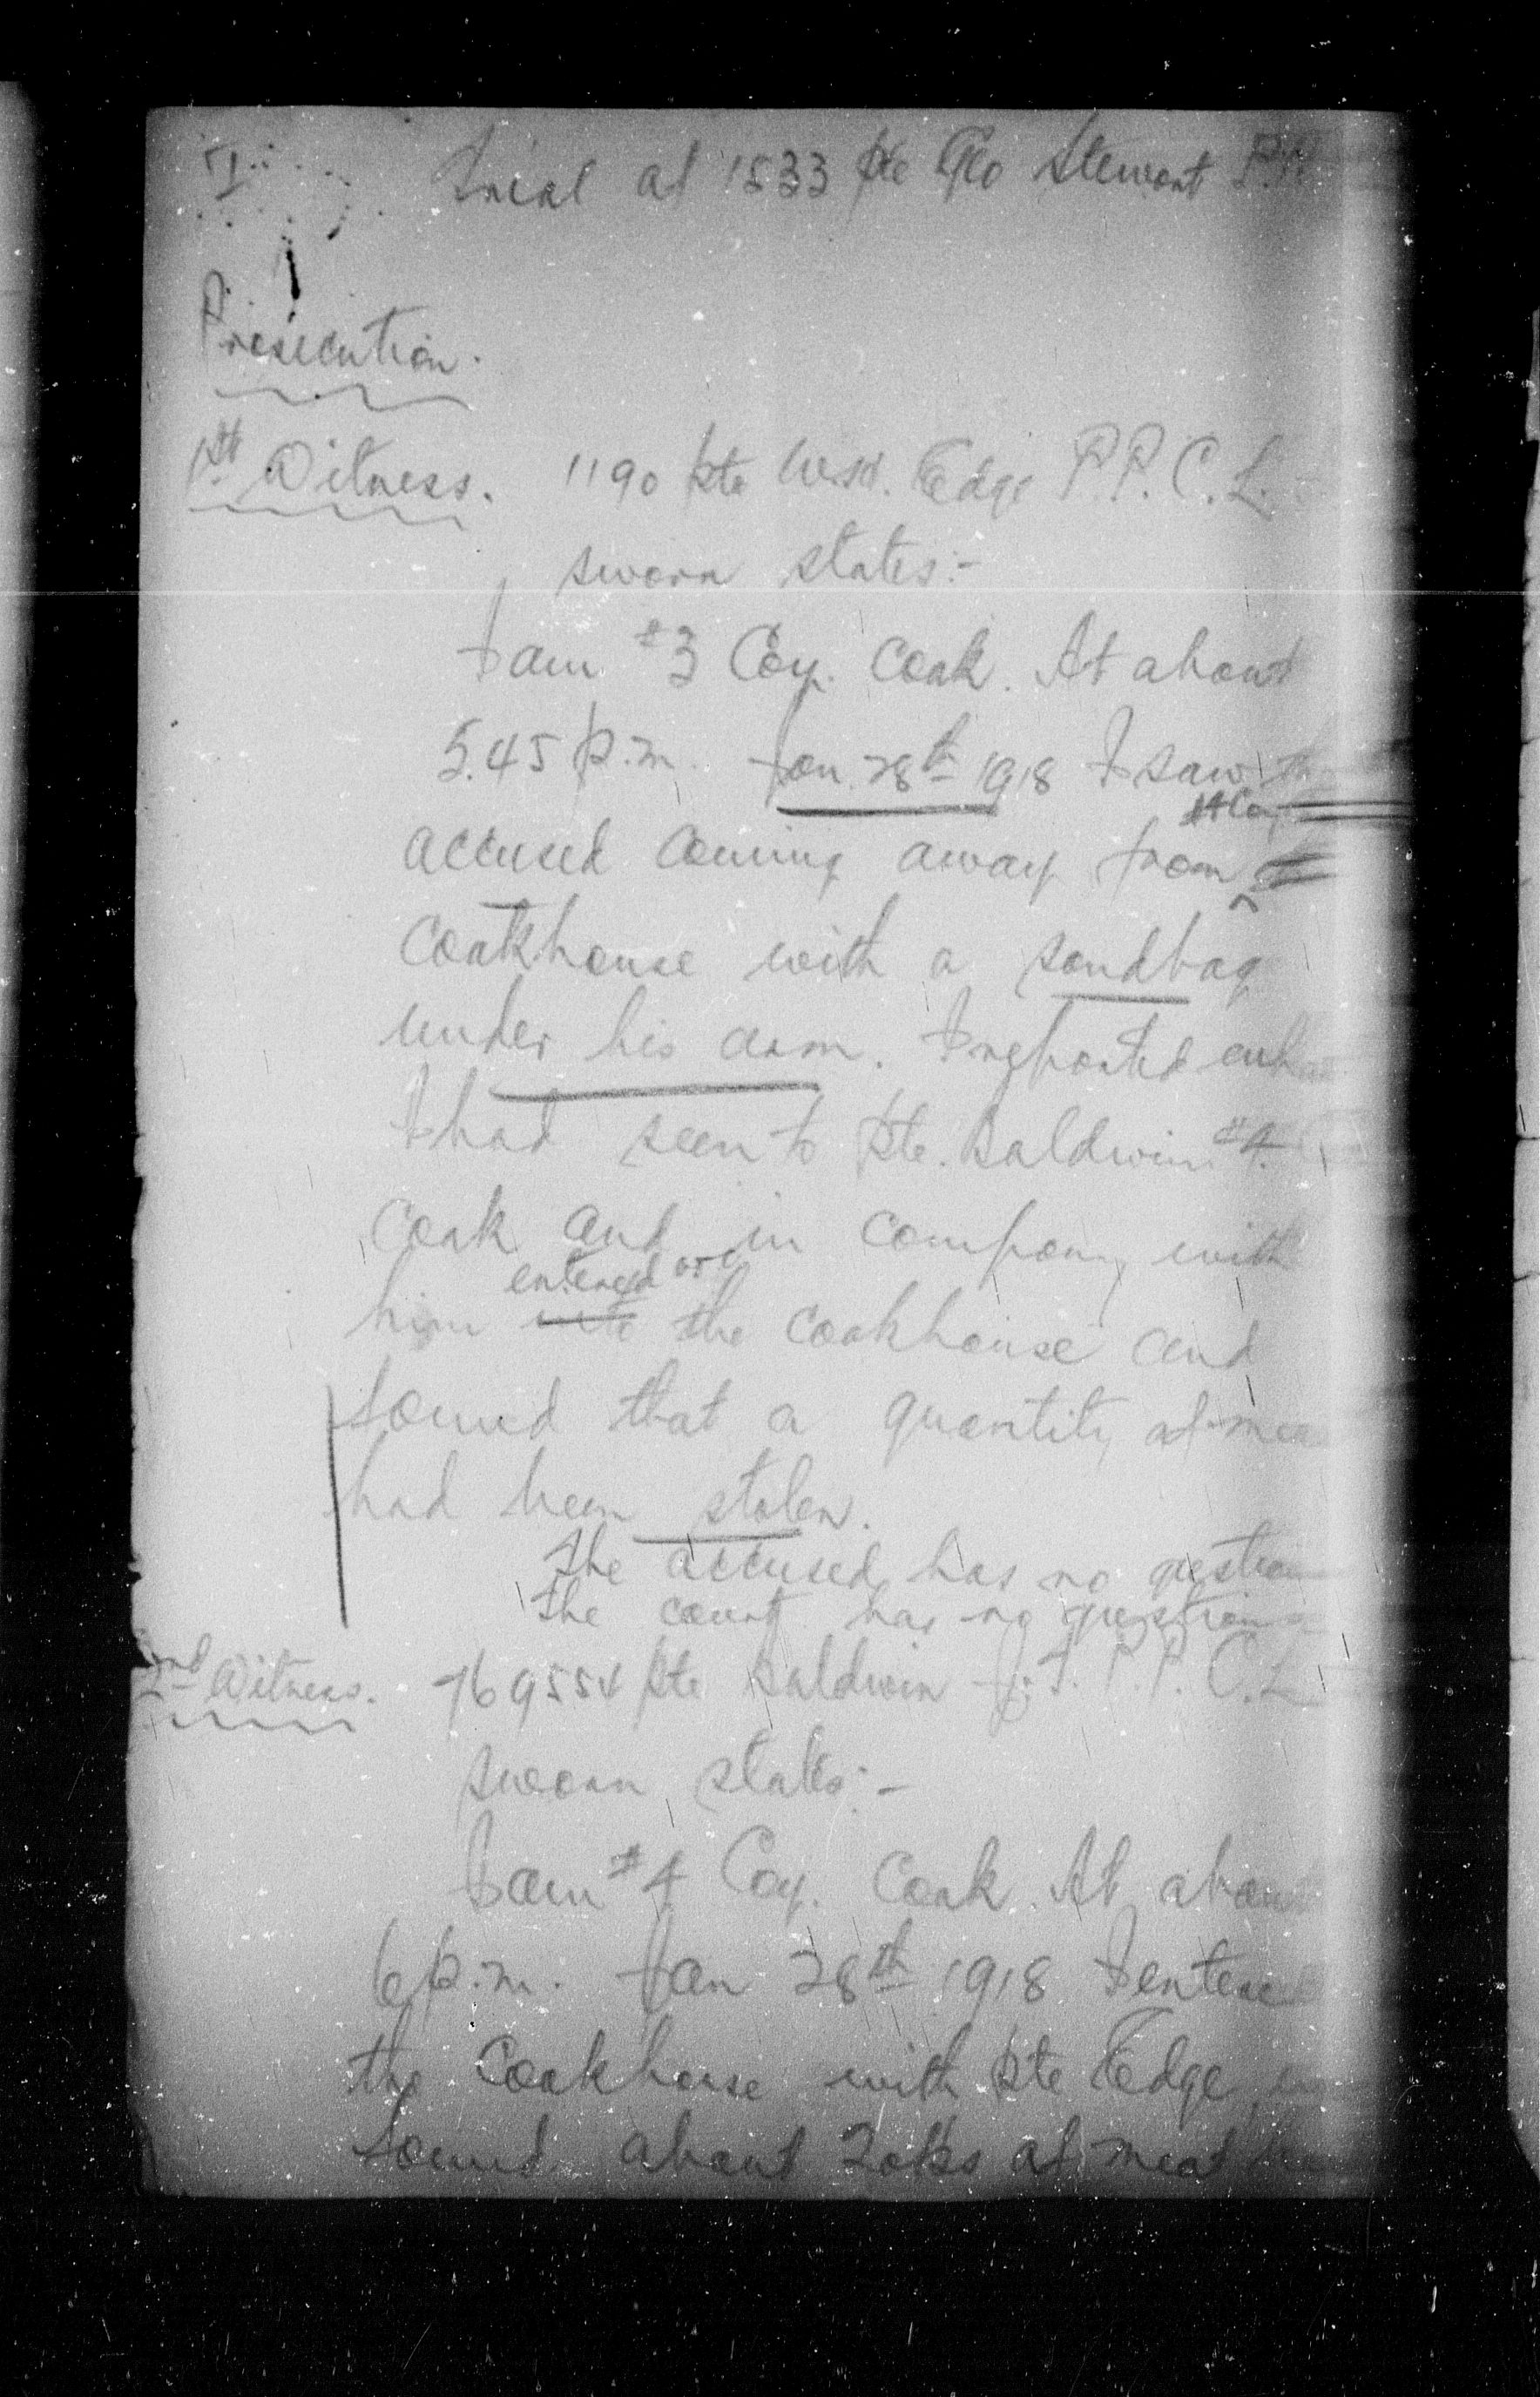 Trial of 1533 Pte Geo Stewart P.P.
Prosecution.
1st Witness. 1190 Pte W.W. Edge P.P.C.L.
sworn states:-
I am #3 Coy. Cook. At about
5.45 p.m. Jan. 28th 1918 I saw the
#4 Coy
accused coming away from
Cookhouse with a sandbag
under his arm. I reported what
I had seen to Pte. Baldwin #4.
Cook and in company with
entered
him into the cookhouse and
found that a quantity of meat
had been stolen.
The accused has no question
The court has no questions
2nd Witness. 769554 Pte Baldwin J.T. P.P.C.L
sworn states:-
I am #4 Coy. Cook. At about
6 p.m. Jan 28th 1918 I entered
the Cookhouse with Pte Edge
found about 20 lbs of meat